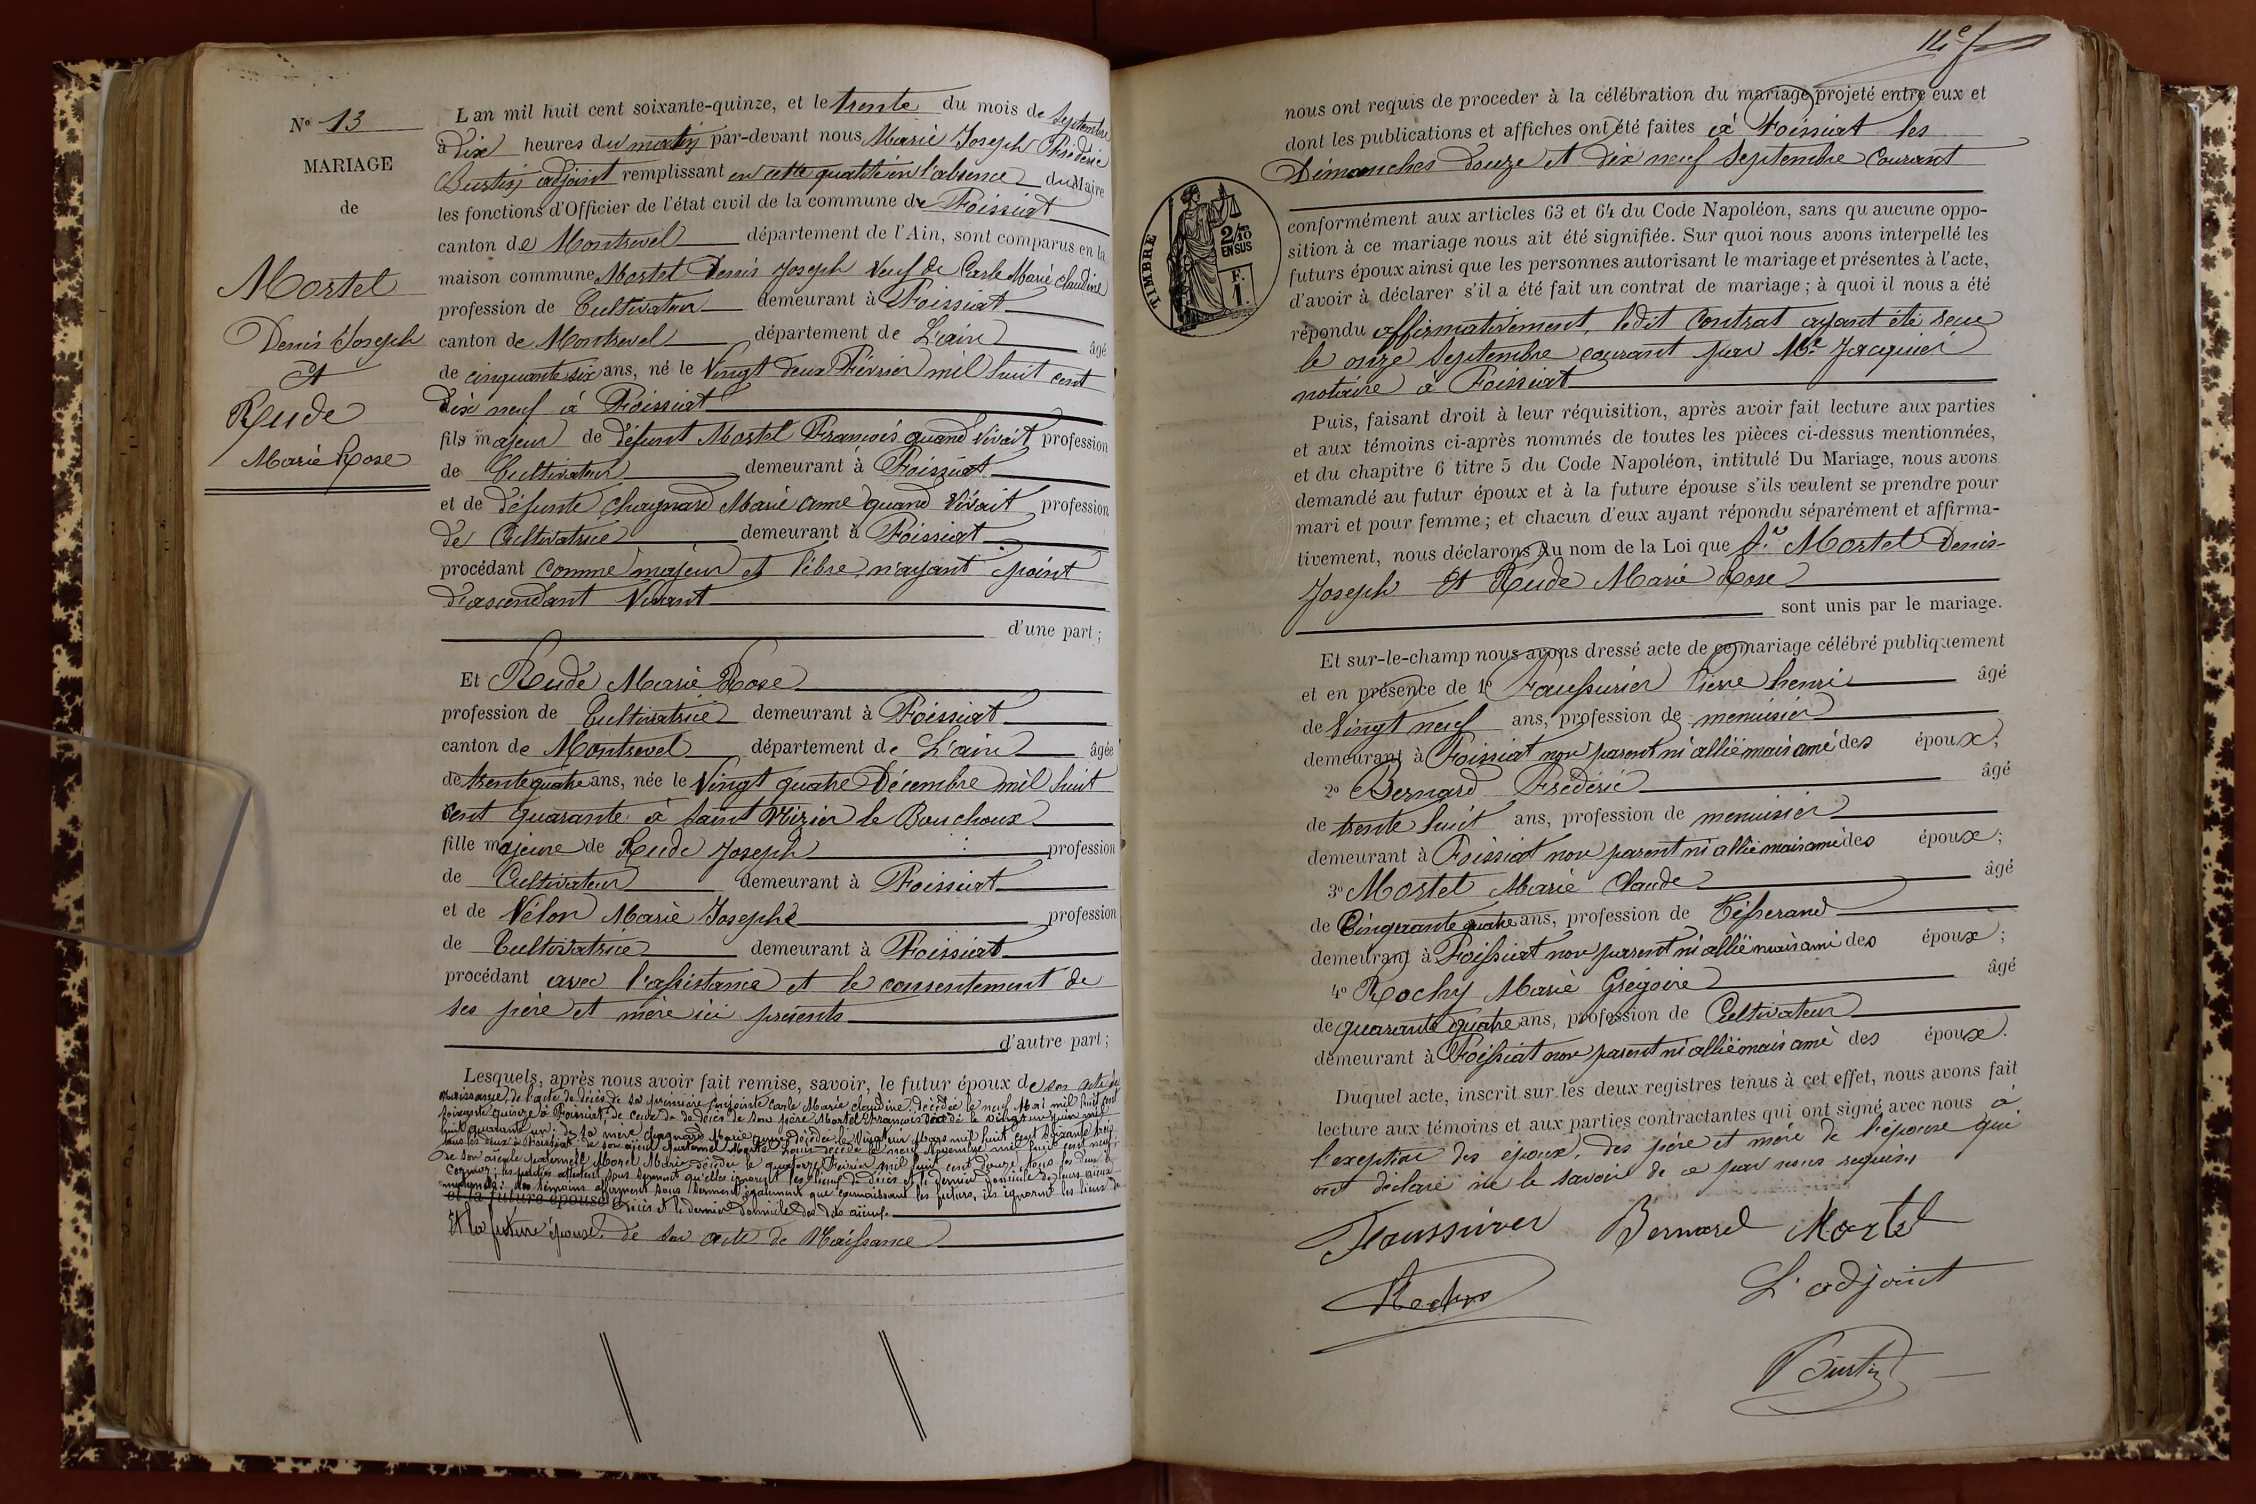 Nº 13
MARIAGE
de
Mortel
Denis Joseph
et
Rude
Marie Rose
L'an mil huit cent soixante-quinze, et le trente du mois de Septembre
à dix heures du matin par-devant nous Marie Joseph Frédéric
Burtin adjoint remplissant en cette qualité en l'absence du Maire
les fonctions d'Officier de l'état civil de la commune de Foissiat
canton de Montrevel département de l'Ain, sont comparus en la
maison commune Mortel Denis Joseph Veuf de Carle Marie Claudine
profession de Cultivateur demeurant à Foissiat
canton de Montrevel département de L'ain âgé
de cinquante six ans, né le Vingt deux Février mil huit cent
Dix neuf à Foissiat
fils majeur de défunt Mortel François quand vivait profession
de Cultivateur demeurant à Foissiat
et de défunte Chagnard Marie anne quand Vivait profession
de Cultivatrice demeurant à Foissiat
procédant comme majeur et libre, n'ayant point
d'ascendant Vivant
d'une part ;
Et Rude Marie Rose
profession de Cultivatrice demeurant à Foissiat
canton de Montrevel département de L'ain âgée
de trente quatre ans, née le Vingt quatre Décembre mil huit
cent quarante à Saint Nizier le Bouchoux
fille majeure de Rude Joseph profession
de Cultivateur demeurant à Foissiat
et de Vélon Marie Josephe profession
de Cultivatrice demeurant à Foissiat
procédant avec l'assistance et le consentement de
ses père et mère ici présents
d'autre part ;
Lesquels, après nous avoir fait remise, savoir, le futur époux de son acte de
naissance, de l'acte de décès de sa première conjointe Carle Marie Claudine, décédée le neuf Mai mil huit cent
soixante quinze à Foissiat, de ceux de décès de son père Mortel François décédé le vingt un Juin mil
huit quarante un ; de sa mère Chagnard Marie anne décédée le Vingt un Mars mil huit cent soixante
tous les deux à Foissiat de son aïeul paternel Mortel Louis décédé le neuf Novembre mil huit cent neuf ;
de son aïeule paternelle Morel Marie décédée le quatorze Février mil huit cent douze, tous les deux à
Cormoz ; les parties attestent sous serment qu'elles ignorent les lieux de décès et le dernier domicile de leurs aïeux
maternels ; les témoins affirment sous serment également que connaissant les futurs, ils ignorent les lieux de
et la future épouse décès et le dernier domicile des dits aïeux
Et la future épouse, de son acte de Naissance
14e f
nous ont requis de procéder à la célébration du mariage projeté entre eux et
dont les publications et affiches ont été faites à Foissiat les
Dimanches douze et dix neuf Septembre Courant
TIMBRE
2/10
EN SUS
F.
1.
conformément aux articles 63 et 64 du Code Napoléon, sans qu'aucune oppo-
sition à ce mariage nous ait été signifiée. Sur quoi nous avons interpellé les
futurs époux ainsi que les personnes autorisant le mariage et présentes à l'acte,
d'avoir à déclarer s'il a été fait un contrat de mariage ; à quoi il nous a été
répondu affirmativement, ledit Contrat ayant été reçu
le onze Septembre courant par Me Jacquier
notaire à Foissiat
Puis, faisant droit à leur réquisition, après avoir fait lecture aux parties
et aux témoins ci-après nommés de toutes les pièces ci-dessus mentionnées,
et du chapitre 6 titre 5 du Code Napoléon, intitulé Du Mariage, nous avons
demandé au futur époux et à la future épouse s'ils veulent se prendre pour
mari et pour femme ; et chacun d'eux ayant répondu séparément et affirma-
tivement, nous déclarons au nom de la Loi que Mortel Denis-
Joseph Et Rude Marie Rose
sont unis par le mariage.
Et sur-le-champ nous avons dressé acte de ce mariage célébré publiquement
et en présence de 1º Faussurier Pierre henri âgé
de Vingt neuf ans, profession de menuisier
demeurant à Foissiat non parent ni allié mais ami des époux ;
2º Bernard Frédéric âgé
de trente huit ans, profession de menuisier
demeurant à Foissiat non parent ni allié mais ami des époux ;
3º Mortel Marie Claude âgé
de Cinquante quatre ans, profession de Tisserand
demeurant à Foissiat non parent ni allié mais ami des époux ;
4º Rochy Marie Grégoire âgé
de quarante quatre ans, profession de Cultivateur
demeurant à Foissiat non parent ni allié mais ami des époux.
Duquel acte, inscrit sur les deux registres tenus à cet effet, nous avons fait
lecture aux témoins et aux parties contractantes qui ont signé avec nous à
l'exeption des époux, des père et mère de l'épouse qui
ont déclaré ne le savoir de ce par nous requis.
Faussurier Bernard Mortel
L'adjoint
Burtin